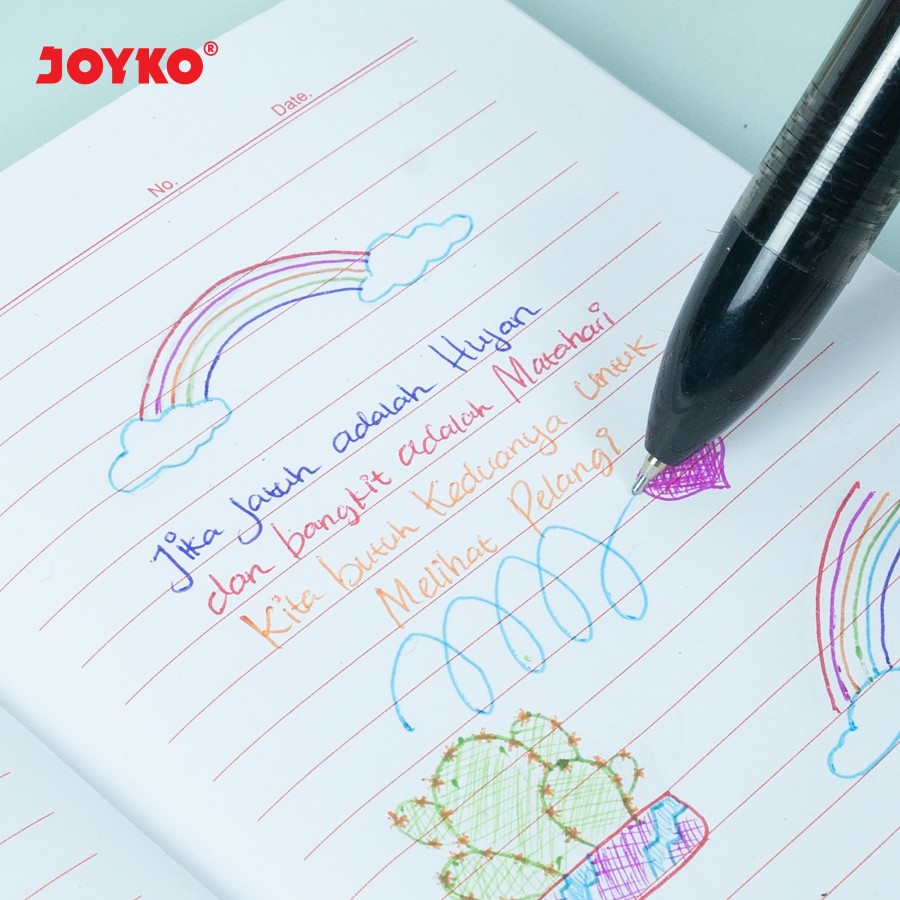 JOYKO®
No. Date.
Jika Jatuh adalah Hujan
dan bangkit adalah Matahari
Kita butuh Keduanya untuk
Melihat Pelangi